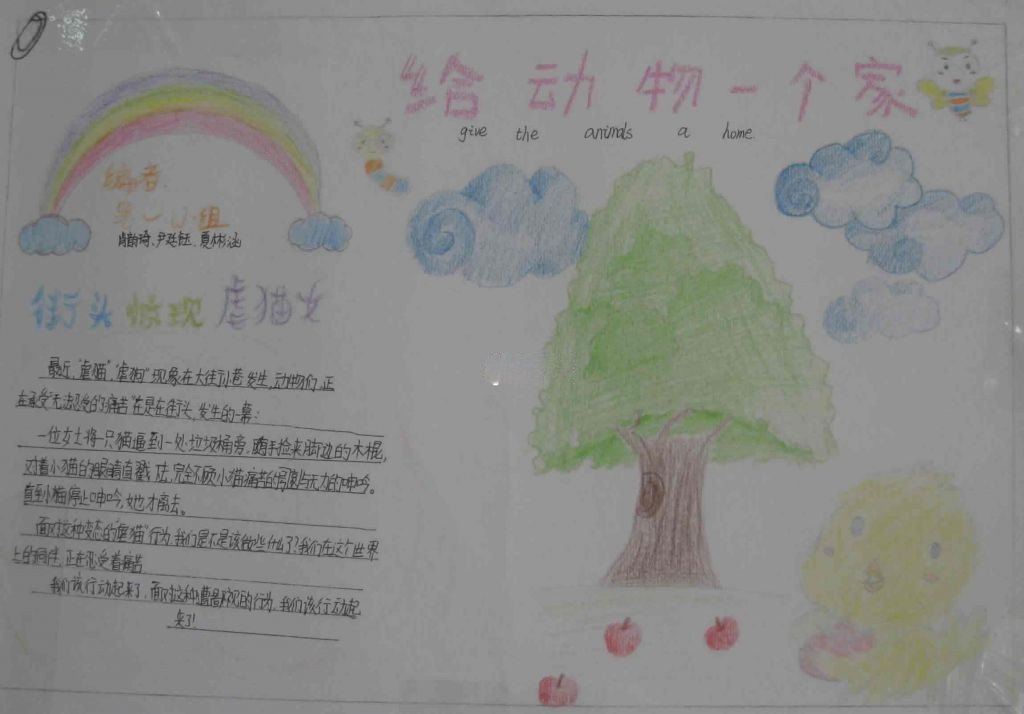 给动物一个家
give the animals a home
编者:
第一小组
尹廷钰、夏彬涵
街头惊现虐猫女
最近,“虐猫”,“虐狗”现象在大街小巷发生,动物们,正
在承受无法忍受的痛苦,在是在街头,发生的一幕:
一位女士将一只猫逼到一处垃圾桶旁,随手捡来脚边的木棍,
对着小猫的眼睛直戳去,完全不顾小猫痛苦的与无力的呻吟。
直到小猫停止呻吟,她才离去。
面对这种变态的“虐猫”行为,我们是不是该做些什么了?我们在这个世界
上的同伴,正在忍受着痛苦
我们该行动起来了,面对这种的行为,我们该行动起
来了!